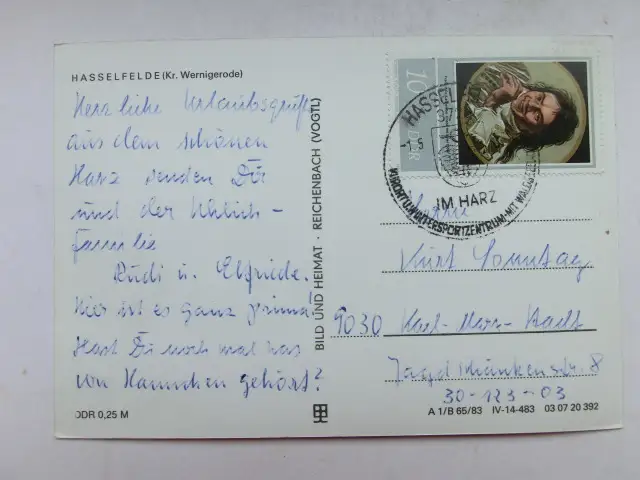 HASSELFELDE (Kr. Wernigerode)
Herzliche Urlaubsgrüße
aus dem schönen
Harz senden Dir
und der
familie
Rudi u. Elfriede.
Hier ist es ganz prima!
Hast Du noch mal was
von Hannchen gehört?
DDR 0,25 M
BILD UND HEIMAT · REICHENBACH (VOGTL)
10
DDR
HASSELFELDE
IM HARZ
KURORT U. WINTERSPORTZENTRUM · MIT
Herrn
Kurt Sonntag
9030 Karl-Marx-Stadt
Jagdschänkenstr. 8
30-123-03
A 1/B 65/83 IV-14-483 03 07 20 392